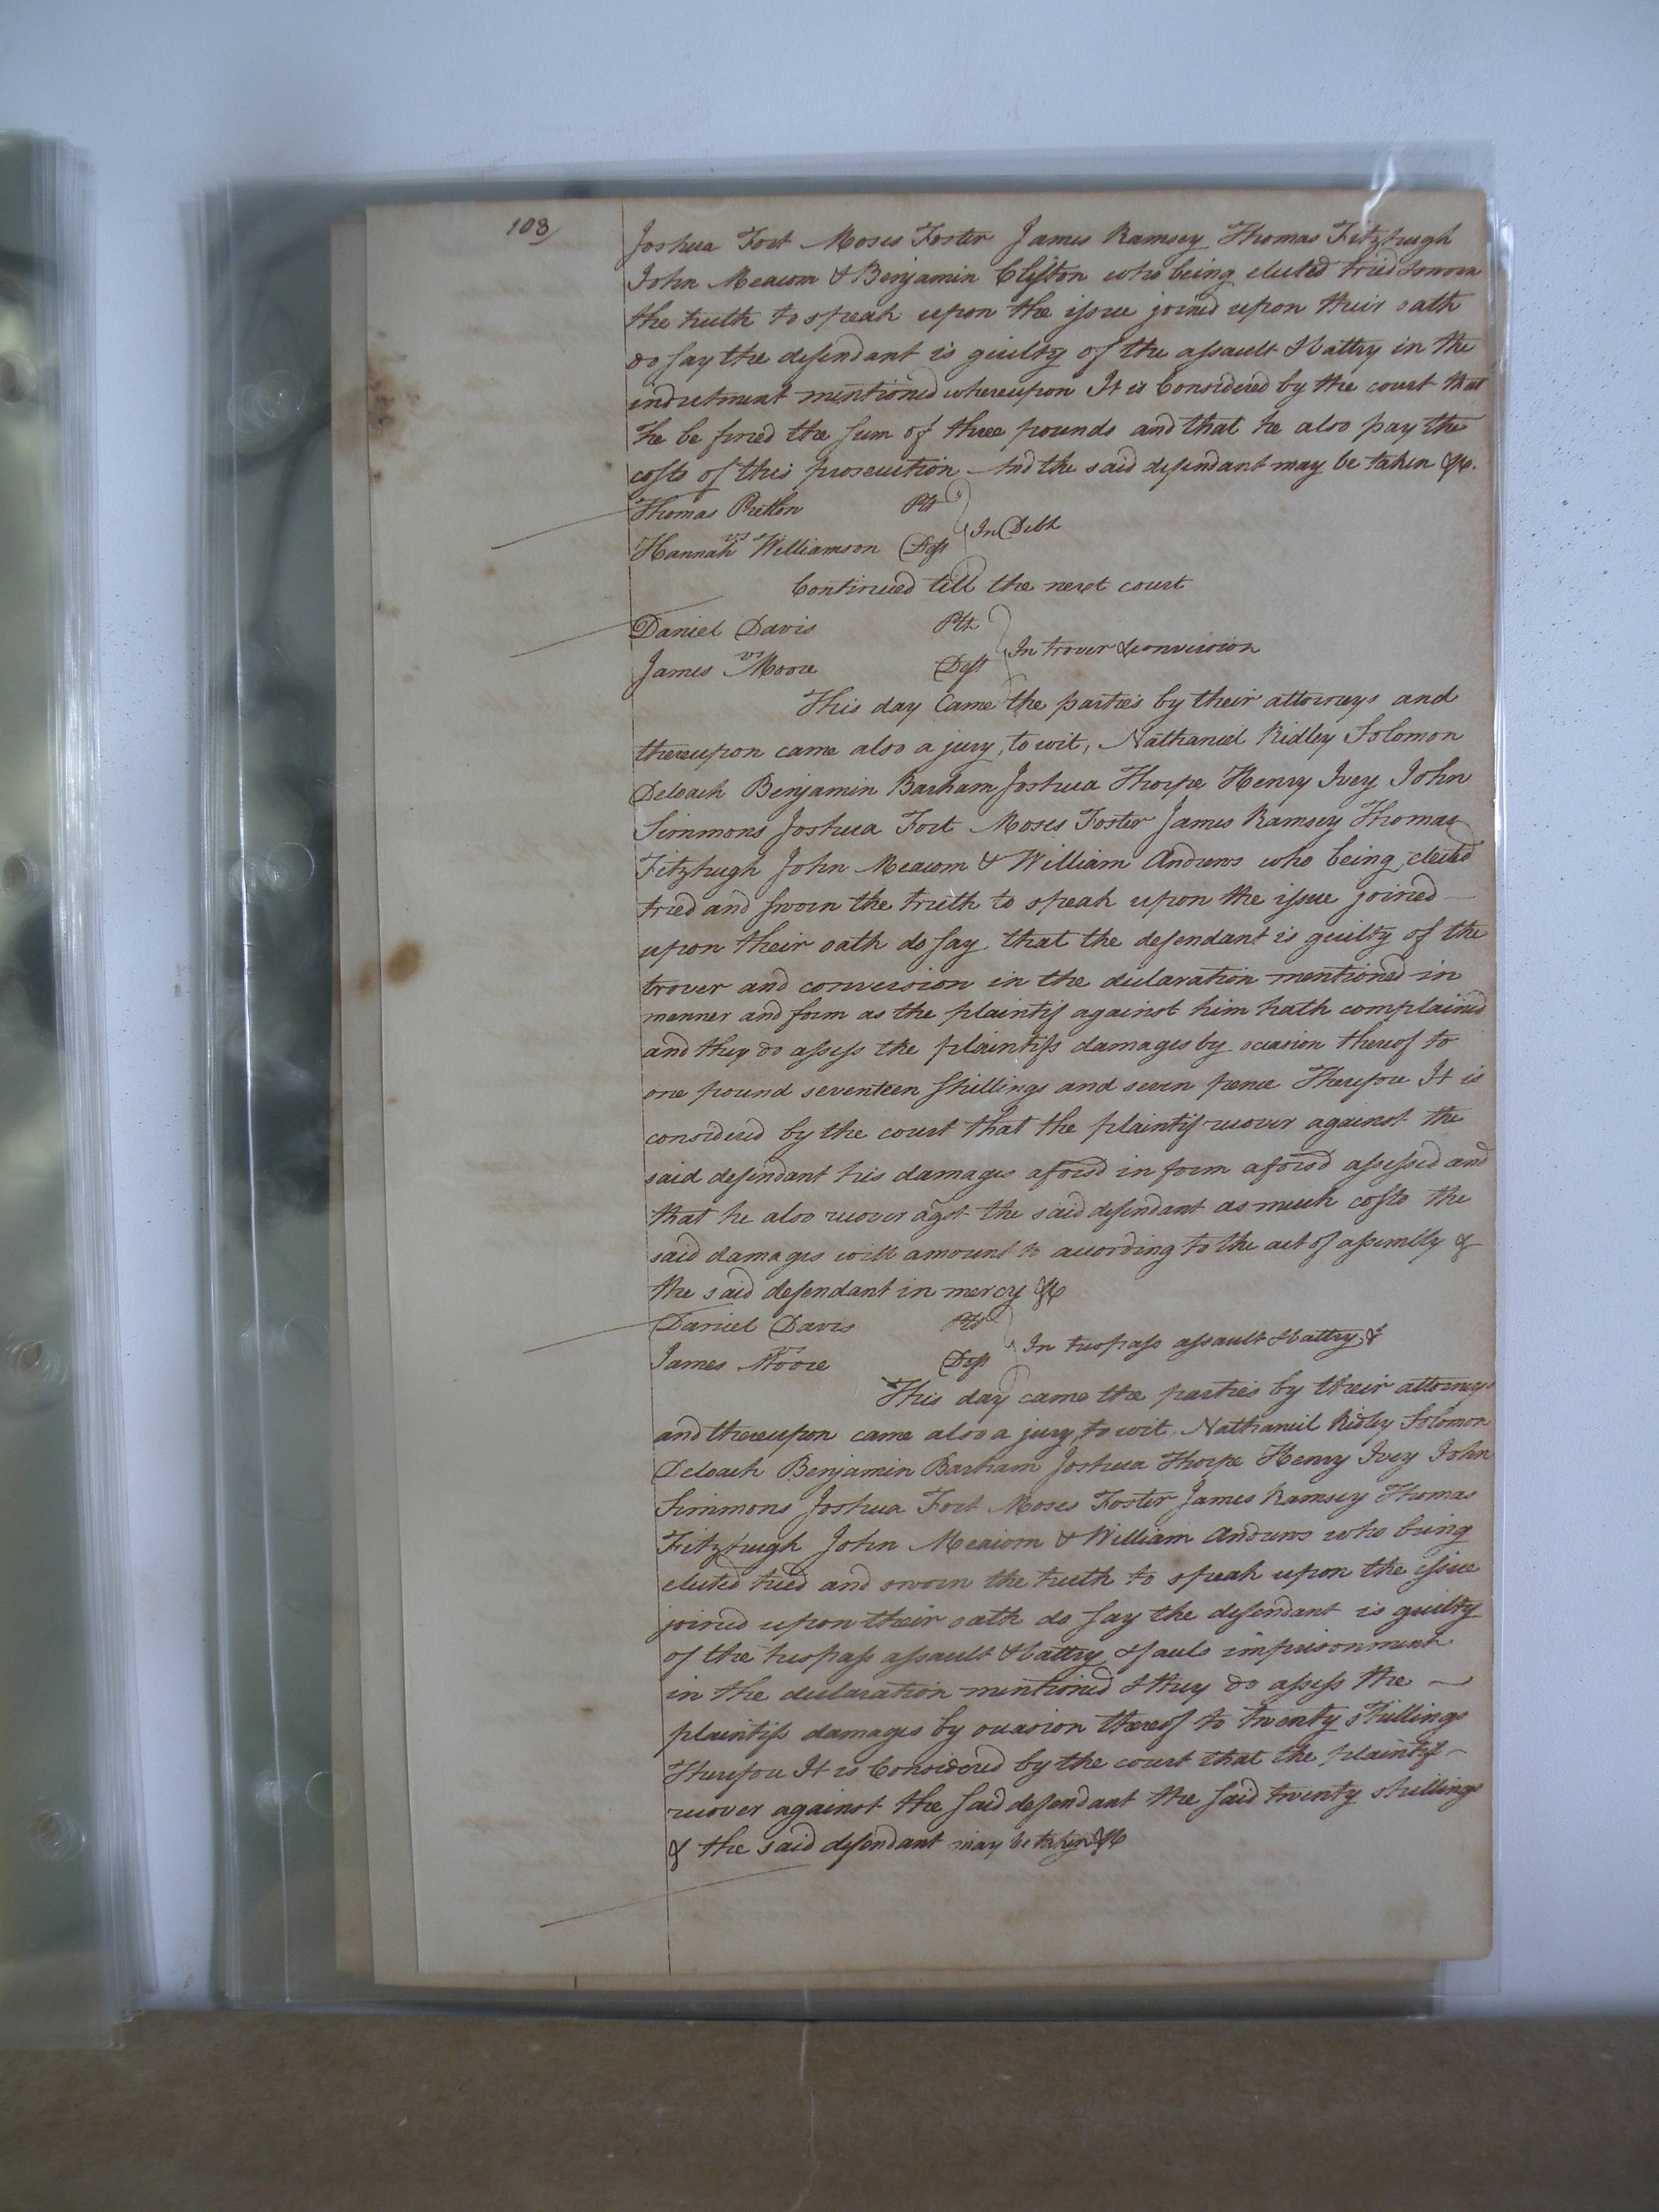 103/
Joshua Fort Moses Foster James Ramsey Thomas Fitzhugh
John Meacom & Benjamin Clifton who being elected tried & sworn
the truth to speak upon the issue joined upon their oath
do say the defendant is guilty of the assault & battry in the
indictment mentioned whereupon It is Considered by the court that
he be fined the sum of three pounds and that he also pay the
costs of this prosecution And the said defendant may be taken &c.
Thomas Pretlow Plt
vs In Debt
Hannah Williamson Deft
Continued till the next court
Daniel Davis Plt
vs In trover & conversion
James Moore Deft
This day Came the parties by their attorneys and
thereupon came also a jury, to wit, Nathaniel Ridley Solomon
Deloach Benjamin Barham Joshua Thorpe Henry Ivey John
Simmons Joshua Fort Moses Foster James Ramsey Thomas
Fitzhugh John Meacom & William Andrews who being elected
tried and sworn the truth to speak upon the issue joined
upon their oath do say that the defendant is guilty of the
trover and conversion in the declaration mentioned in
manner and form as the plaintif against him hath complained
and they do assess the plaintifs damages by occasion thereof to
one pound seventeen shillings and seven pence Therefore It is
considered by the court that the plaintif recover against the
said defendant his damages aforesd in form aforesd assessed and
that he also recover agst the said defendant as much costs the
said damages will amount to according to the act of assembly &
the said defendant in mercy &c
Daniel Davis Plt
vs In trespass assault & battry &c
James Moore Deft
This day came the parties by their attorneys
and thereupon came also a jury, to wit, Nathaniel Ridley Solomon
Deloach Benjamin Barham Joshua Thorpe Henry Ivey John
Simmons Joshua Fort Moses Foster James Ramsey Thomas
Fitzhugh John Meacom & William Andrews who being
elected tried and sworn the truth to speak upon the issue
joined upon their oath do say the defendant is guilty
of the trespass assault & battry & fauls imprisonment
in the declaration mentioned & they do assess the
plaintifs damages by occasion thereof to twenty shillings
Therefore It is Considered by the court that the plaintif
recover against the said defendant the said twenty shillings
& the said defendant may be taken &c